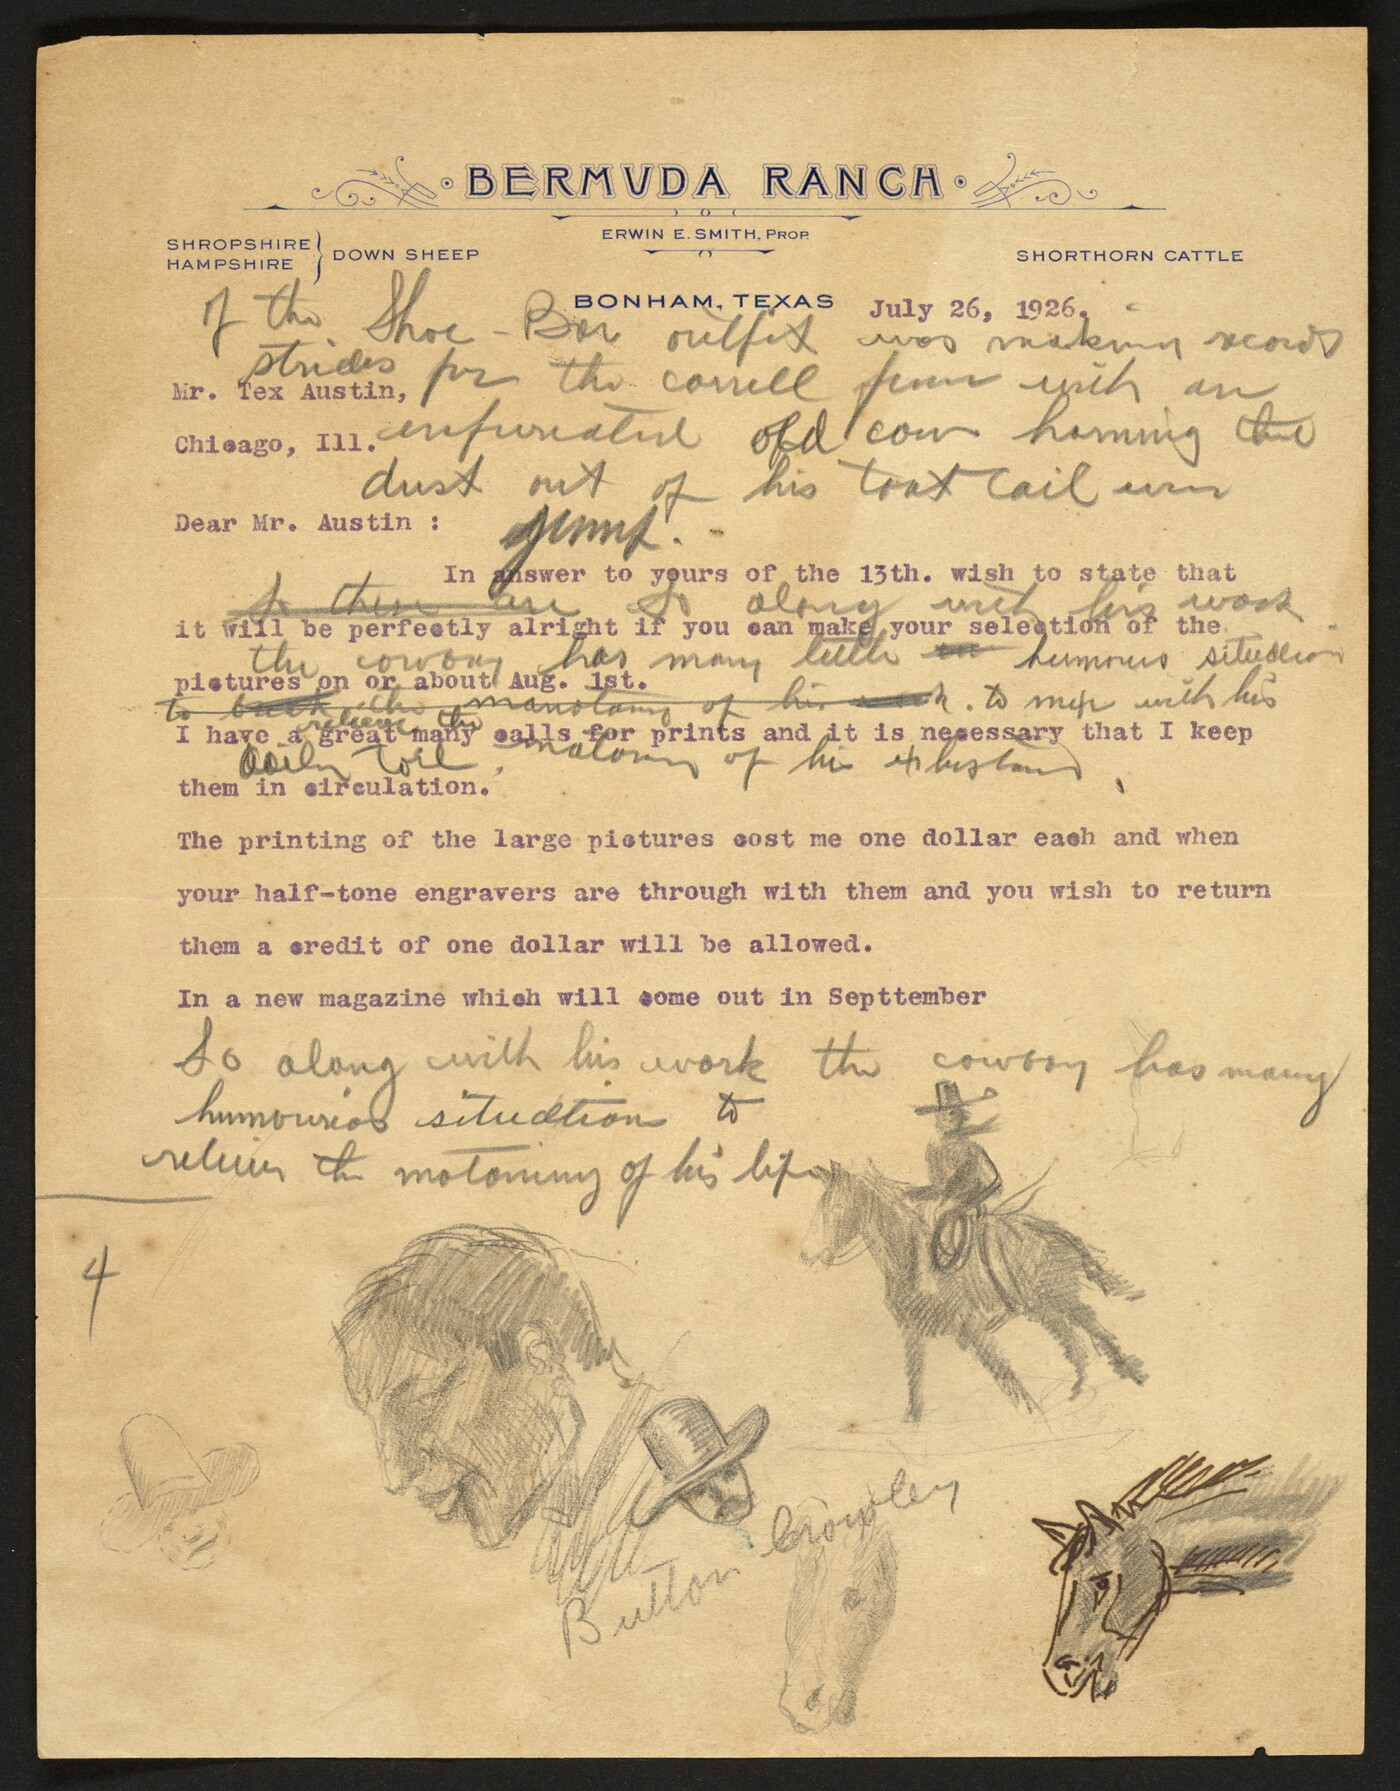 BERMUDA RANCH
ERWIN E. SMITH, PROP.
SHROPSHIRE
HAMPSHIRE
DOWN SHEEP
SHORTHORN CATTLE
BONHAM, TEXAS
July 26, 1926.
of the Shoe-Bar outfit was making record
strides for the correll fenc with an
Mr. Tex Austin,
enfuriated old cow horning the
Chicago, Ill.
dust out of his coat tail
Dear Mr. Austin :
jump.
In answer to yours of the 13th. wish to state that
So there are So along with his work
it will be perfectly alright if you can make your selection of the
the cowboy has many little humorous situation
pictures on or about Aug. 1st.
to break the monotony of his work. to mix with his
relieve the
I have a great many calls for prints and it is necessary that I keep
daily toil. motony of his
them in circulation.
The printing of the large pictures cost me one dollar each and when
your half-tone engravers are through with them and you wish to return
them a credit of one dollar will be allowed.
In a new magazine which will come out in Septtember
So along with his work the cowboy has many
humourios situations to
relieve the motoniny of his life
4
Button Crowley